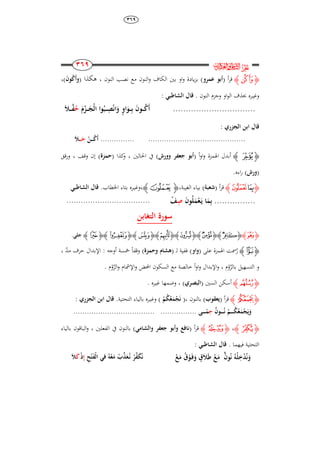 ٣٦٩
٣٦٩
﴿وَأَكُن﴾ قرأ (أبو عمرو) بزيادة واو بين الكاف والنون مع نصب النون ، هكذا (وَأَكُونَ)،
وغيره بحذف الواو وجزم النون . قال الشاطبي :
............................... أَكُـونَ بِـوَاوٍ وَانْصِبُـوا الْجَـزْمَ حُفَّـلاَ
قال ابن الجزري :
أَكُـنْ حَـلاَ
﴿يُؤَخِّرَ﴾ أبدل الهمزة واواً (أبو جعفر وورش) في الحالين ، وكذا (حمزة) إن وقف ، ورقق
(ورش) راءه.
﴿بِمَا تَعْمَلُونَ﴾ قرأ (شعبة) بياء الغيبة، ﴿يَعْمَلُونَ﴾ وغيره بتاء الخطاب. قال الشاطبي
............... بِمَا يَعْمَلُونَ صِفْ
سورة التغابن
جلي
﴿نَبَؤُا﴾ رُسمت الهمزة على (واو) ففيه لـ (هشام وحمزة) وقفاً خمسة أوجه : الإبدال حرف مدّ ،
و التسهيل بالرَّوم ، والإبدال واواً خالصة مع السكون المحض والإشمام والرَّوم .
﴿رُسُلُهُم﴾ أسكن السين (البصري) ، وضمها غيره .
﴿يَجْمَعُكُمْ﴾ قرأ (يعقوب) بالنون، ﴿نَجْمَعُكُمْ﴾ وغيره بالياء التحتية. قال ابن الجزري :
وَيَجْمَعُكُـمْ نُـونٌ حِمًـى
﴿يُكَفِّرْ﴾ ﴿وَيُدْخِلْهُ﴾ قرأ (نافع وأبو جعفر والشامي) بالنون في الفعلين ، والباقون بالياء
التحتية فيهما . قال الشاطبي :
وَنُدْخِلْهُ نُونٌ مَعْ طَلاَقٍ وَفَوْقُ مَعْ نُكَفِّرْ نُعَذِّبْ مَعْهُ فِي الْفَتْحِ إِذْ كَلاَ